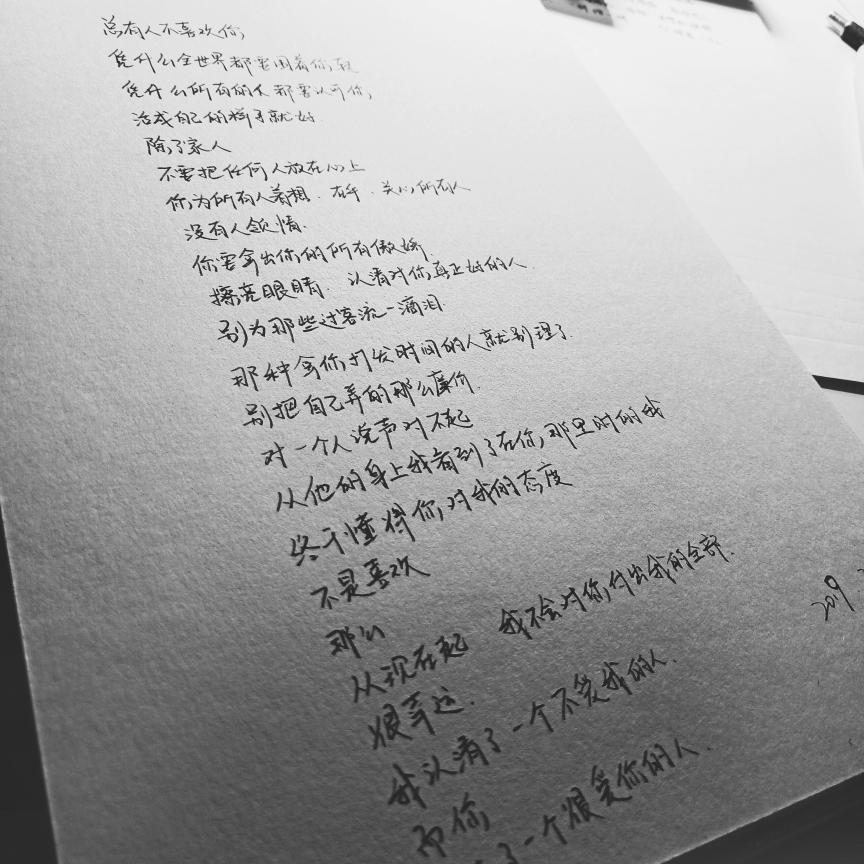 总有人不喜欢你
凭什么全世界都要围着你转
凭什么所有的人都要认可你,
活成自己的样子就好.
除了家人
不要把任何人放在心上
你为所有人着想. 在乎. 关心所有人
没有人领情.
你要拿出你的所有傲娇.
擦亮眼睛. 认清对你真正好的人.
别为那些过客流一滴泪.
那种拿你打发时间的人就别理了.
别把自己弄的那么廉价.
对一个人说声对不起
从他的身上我看到了在你那里时的我
终于懂得你对我的态度
不是喜欢
那么
从现在起 我不会对你付出我的全部.
很幸运.
我认清了一个不爱我的人.
而你
了一个很爱你的人.
2019